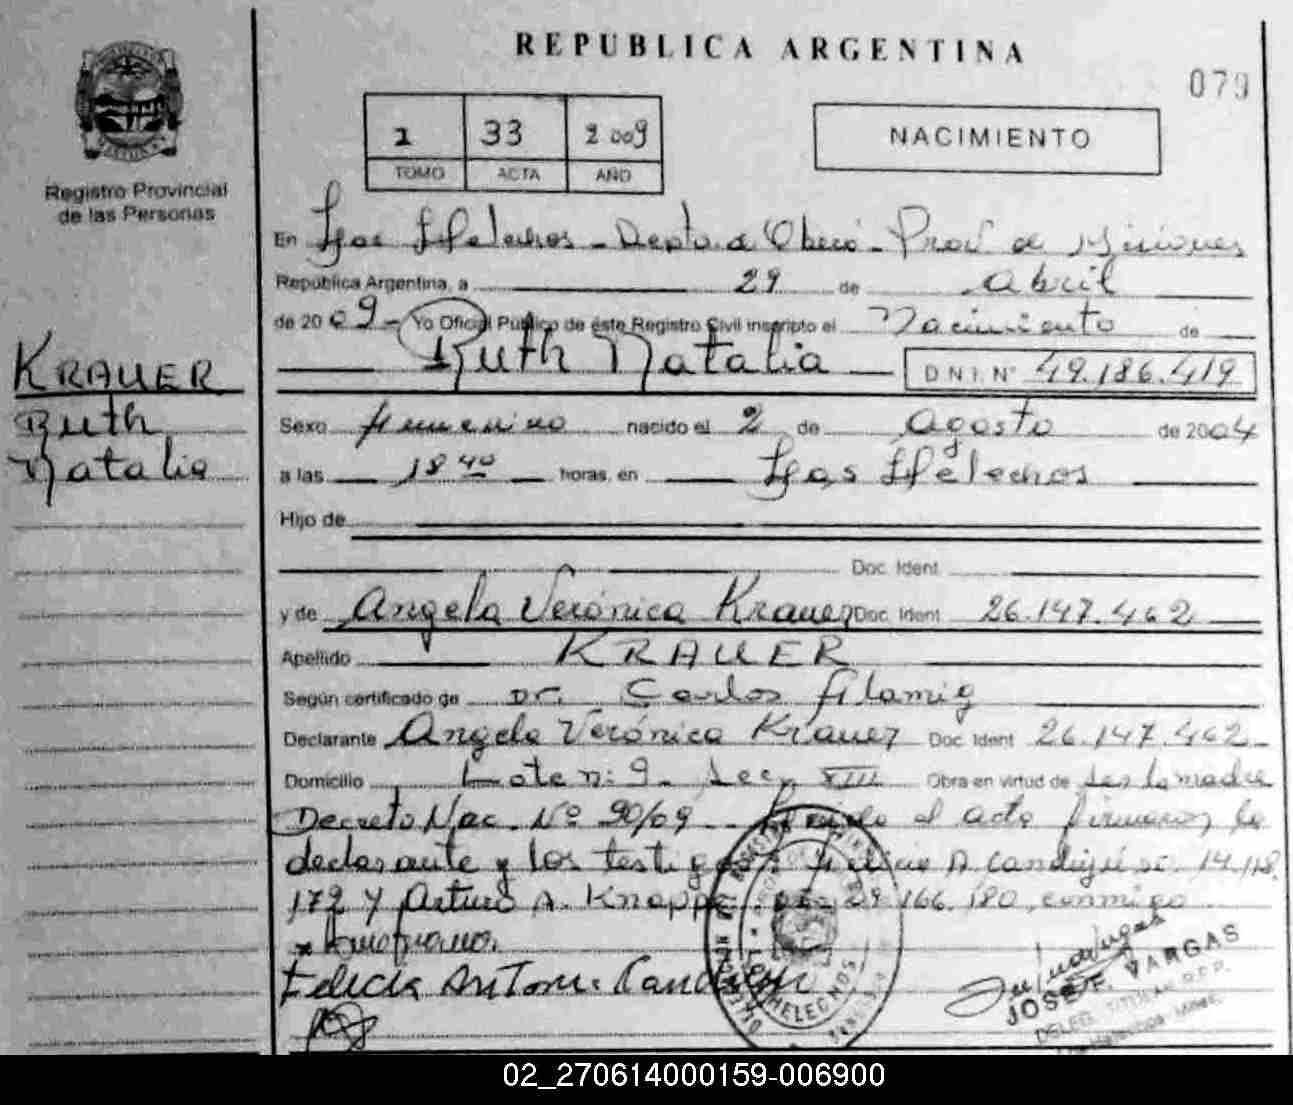 REPUBLICA ARGENTINA
079
1 33 2009
TOMO ACTA AÑO
NACIMIENTO
Registro Provincial
de las Personas
En Los Helechos - Depto. de Oberá - Prov. de Misiones
República Argentina, a 29 de Abril
de 2009 - Yo Oficial Público de éste Registro Civil inscripto el Nacimiento de
Ruth Natalia D.N.I. Nº 49.186.419
KRAUER
Ruth
Natalia
Sexo femenino nacido el 2 de Agosto de 2004
a las 18 40 horas, en Los Helechos
Hijo de
Doc. Ident.
y de Angela Verónica Krauer Doc. Ident. 26.147.462
Apellido KRAUER
Según certificado de Dr. Carlos
Declarante Angela Verónica Krauer Doc. Ident. 26.147.462
Domicilio Lote nº 9 - Secc. XIII Obra en virtud de ser la madre
Decreto Nac. Nº 90/09 el acto la
declarante y los testigos A. 14.118.
172 Y Arturo A. Knapp 29.166.180, conmigo
Felicia Anton.
HELECHOS
JOSE F. VARGAS
DELEG. TITULAR R.P.P.
Los Helechos
02_270614000159-006900